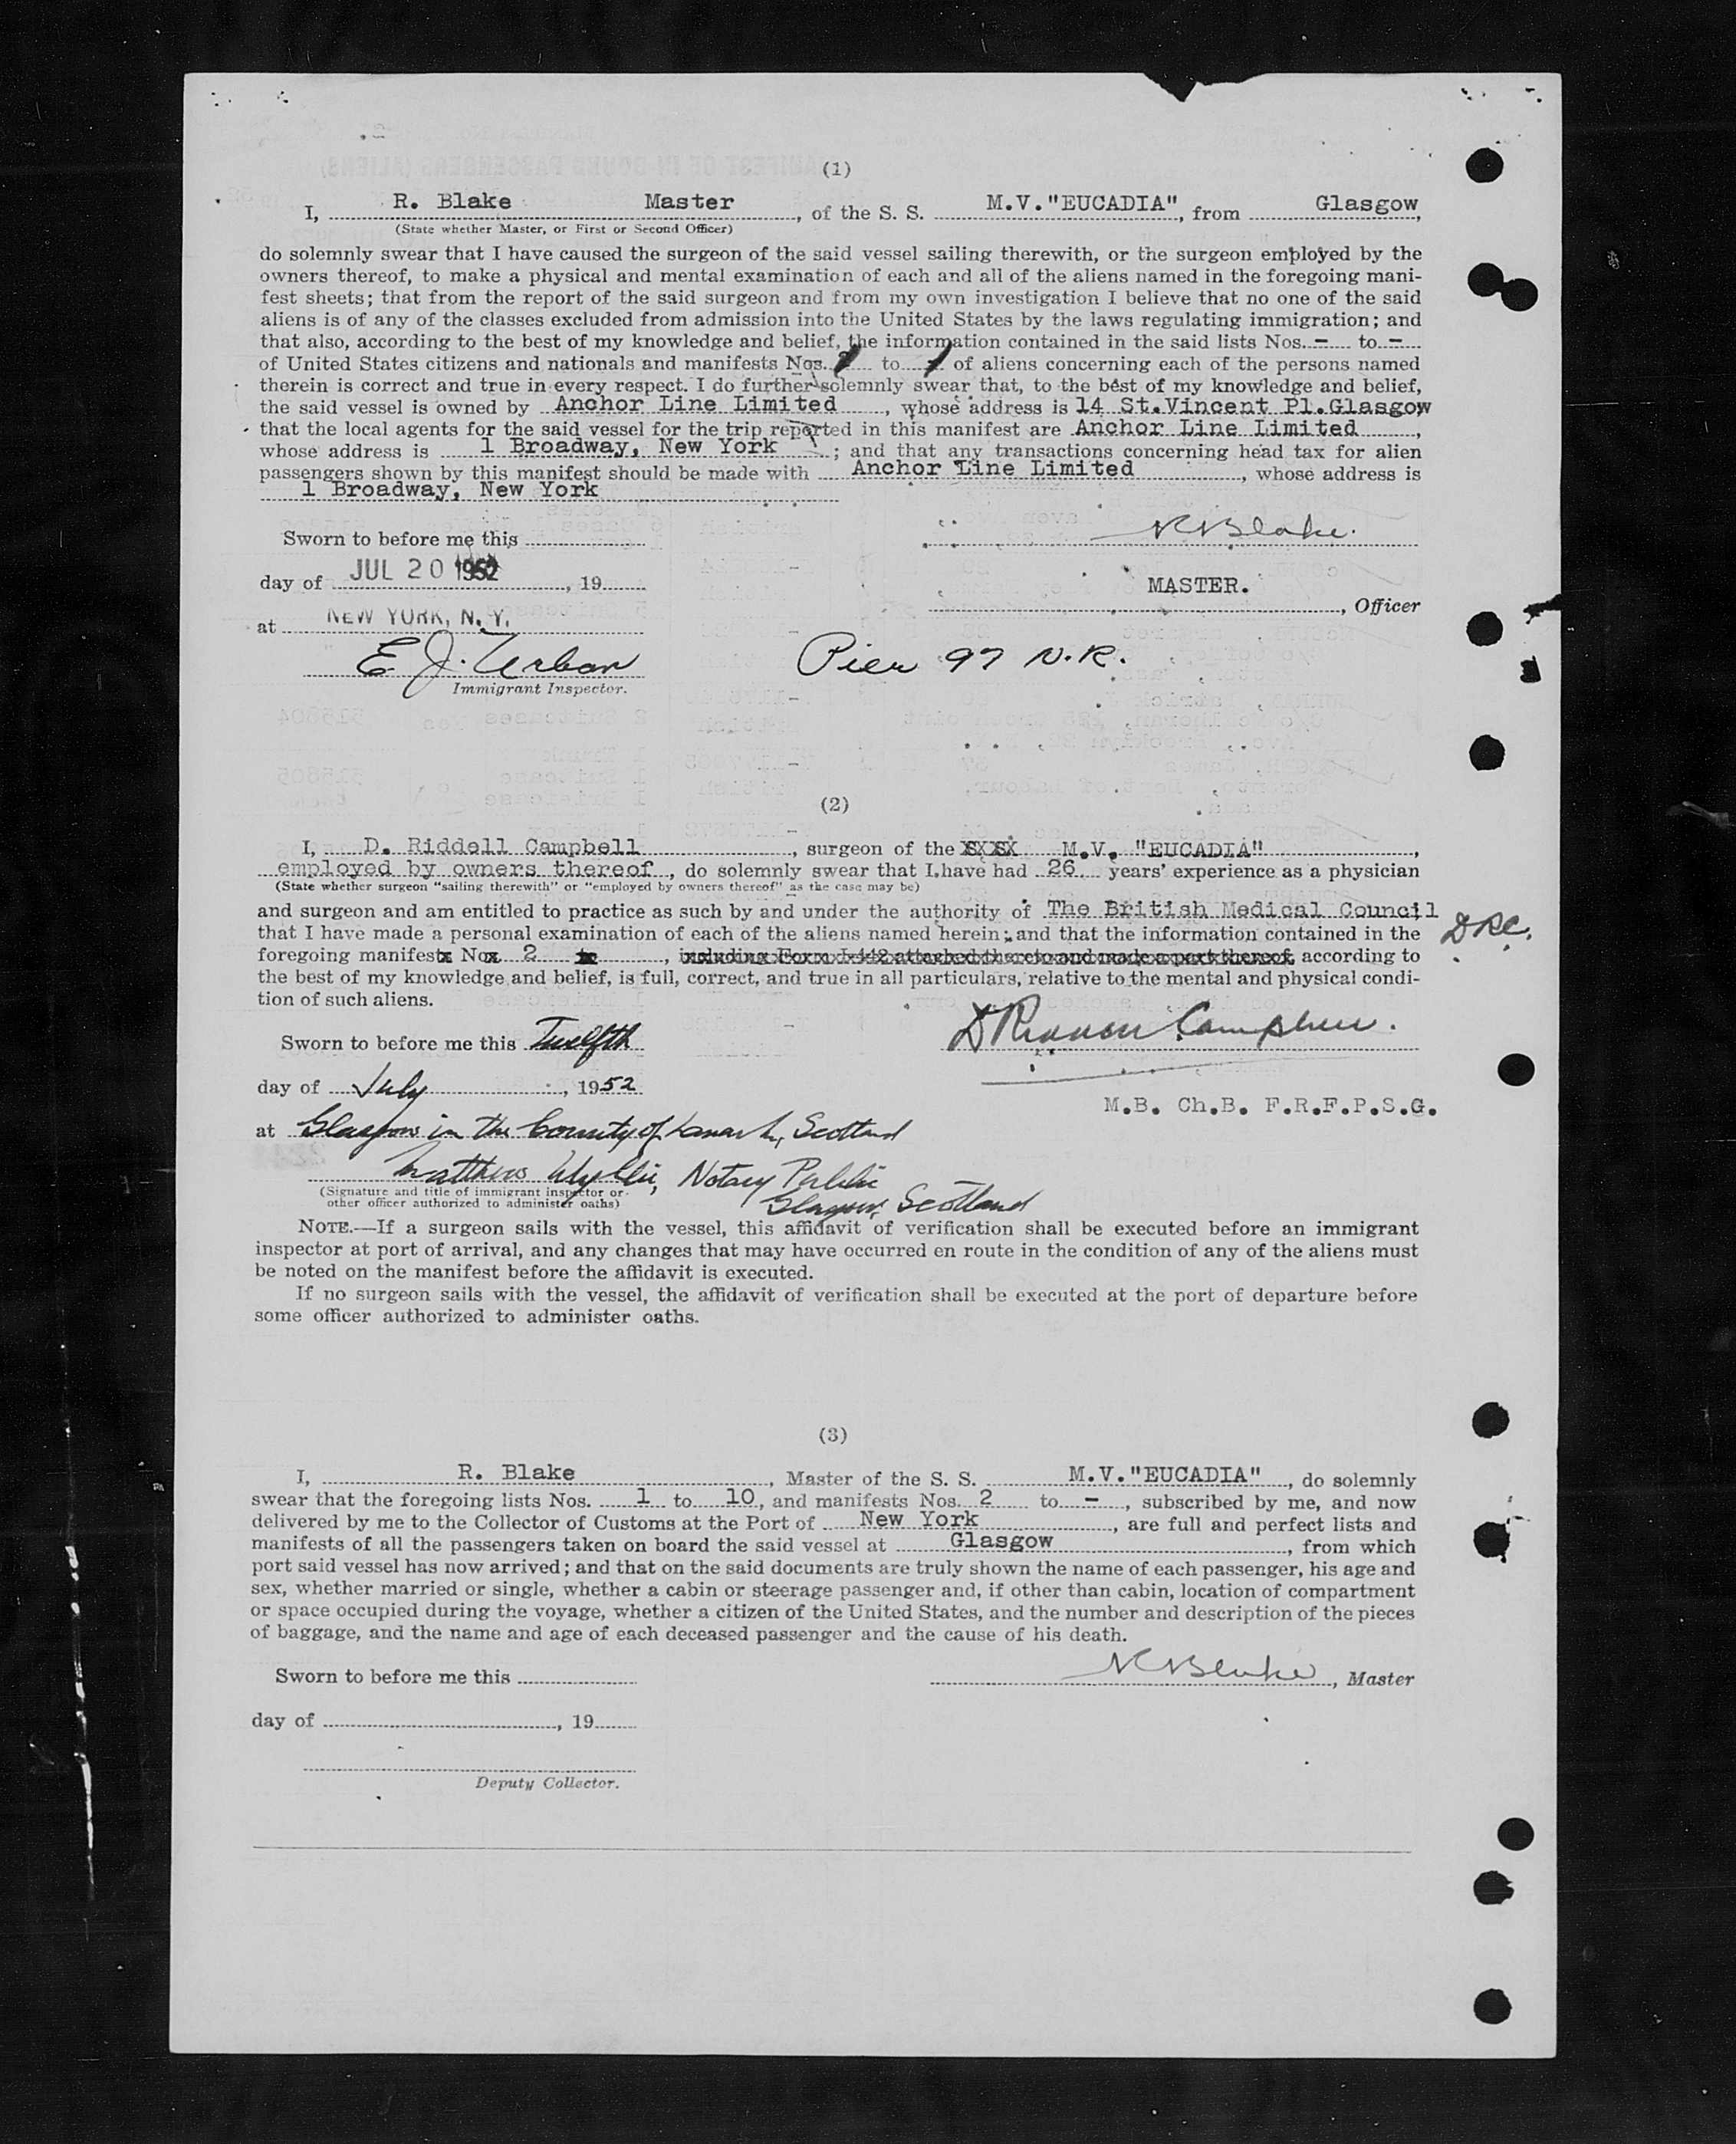 (1)
I, R. Blake Master, of the S. S. M.V."EUCADIA", from Glasgow,
(State whether Master, or First or Second Officer)
do solemnly swear that I have caused the surgeon of the said vessel sailing therewith, or the surgeon employed by the
owners thereof, to make a physical and mental examination of each and all of the aliens named in the foregoing mani-
fest sheets; that from the report of the said surgeon and from my own investigation I believe that no one of the said
aliens is of any of the classes excluded from admission into the United States by the laws regulating immigration; and
that also, according to the best of my knowledge and belief, the information contained in the said lists Nos. - to -
of United States citizens and nationals and manifests Nos. to of aliens concerning each of the persons named
therein is correct and true in every respect. I do further solemnly swear that, to the best of my knowledge and belief,
the said vessel is owned by Anchor Line Limited, whose address is 14 St.Vincent Pl.Glasgow
that the local agents for the said vessel for the trip reported in this manifest are Anchor Line Limited,
whose address is 1 Broadway, New York; and that any transactions concerning head tax for alien
passengers shown by this manifest should be made with Anchor Line Limited, whose address is
1 Broadway, New York
R Blake.
Sworn to before me this
day of JUL 20 1952, 19
MASTER., Officer
at NEW YORK, N. Y.
E. J. Urban Pier 97 N.R.
Immigrant Inspector.
(2)
I, D. Riddell Campbell, surgeon of the M.V. "EUCADIA",
employed by owners thereof, do solemnly swear that I have had 26 years' experience as a physician
(State whether surgeon "sailing therewith" or "employed by owners thereof" as the case may be)
and surgeon and am entitled to practice as such by and under the authority of The British Medical Council
that I have made a personal examination of each of the aliens named herein; and that the information contained in the DRC.
foregoing manifest No 2, including Form I-442 attached thereto and made a part thereof, according to
the best of my knowledge and belief, is full, correct, and true in all particulars, relative to the mental and physical condi-
tion of such aliens.
D Riddell Campbell.
Sworn to before me this Twelfth
day of July, 1952
M.B. Ch.B. F.R.F.P.S.G.
at Glasgow in the County of Lanark, Scotland
Matthew Wyllie, Notary Public
Glasgow, Scotland
(Signature and title of immigrant inspector or
other officer authorized to administer oaths)
NOTE.—If a surgeon sails with the vessel, this affidavit of verification shall be executed before an immigrant
inspector at port of arrival, and any changes that may have occurred en route in the condition of any of the aliens must
be noted on the manifest before the affidavit is executed.
If no surgeon sails with the vessel, the affidavit of verification shall be executed at the port of departure before
some officer authorized to administer oaths.
(3)
I, R. Blake, Master of the S. S. M.V."EUCADIA", do solemnly
swear that the foregoing lists Nos. 1 to 10, and manifests Nos. 2 to -, subscribed by me, and now
delivered by me to the Collector of Customs at the Port of New York, are full and perfect lists and
manifests of all the passengers taken on board the said vessel at Glasgow, from which
port said vessel has now arrived; and that on the said documents are truly shown the name of each passenger, his age and
sex, whether married or single, whether a cabin or steerage passenger and, if other than cabin, location of compartment
or space occupied during the voyage, whether a citizen of the United States, and the number and description of the pieces
of baggage, and the name and age of each deceased passenger and the cause of his death.
Sworn to before me this R Blake, Master
day of, 19
Deputy Collector.